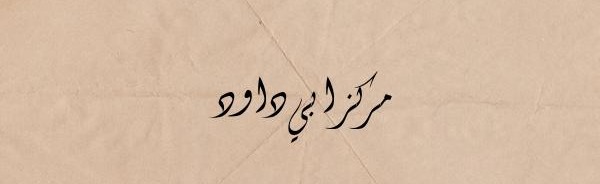 مركز ابي داود